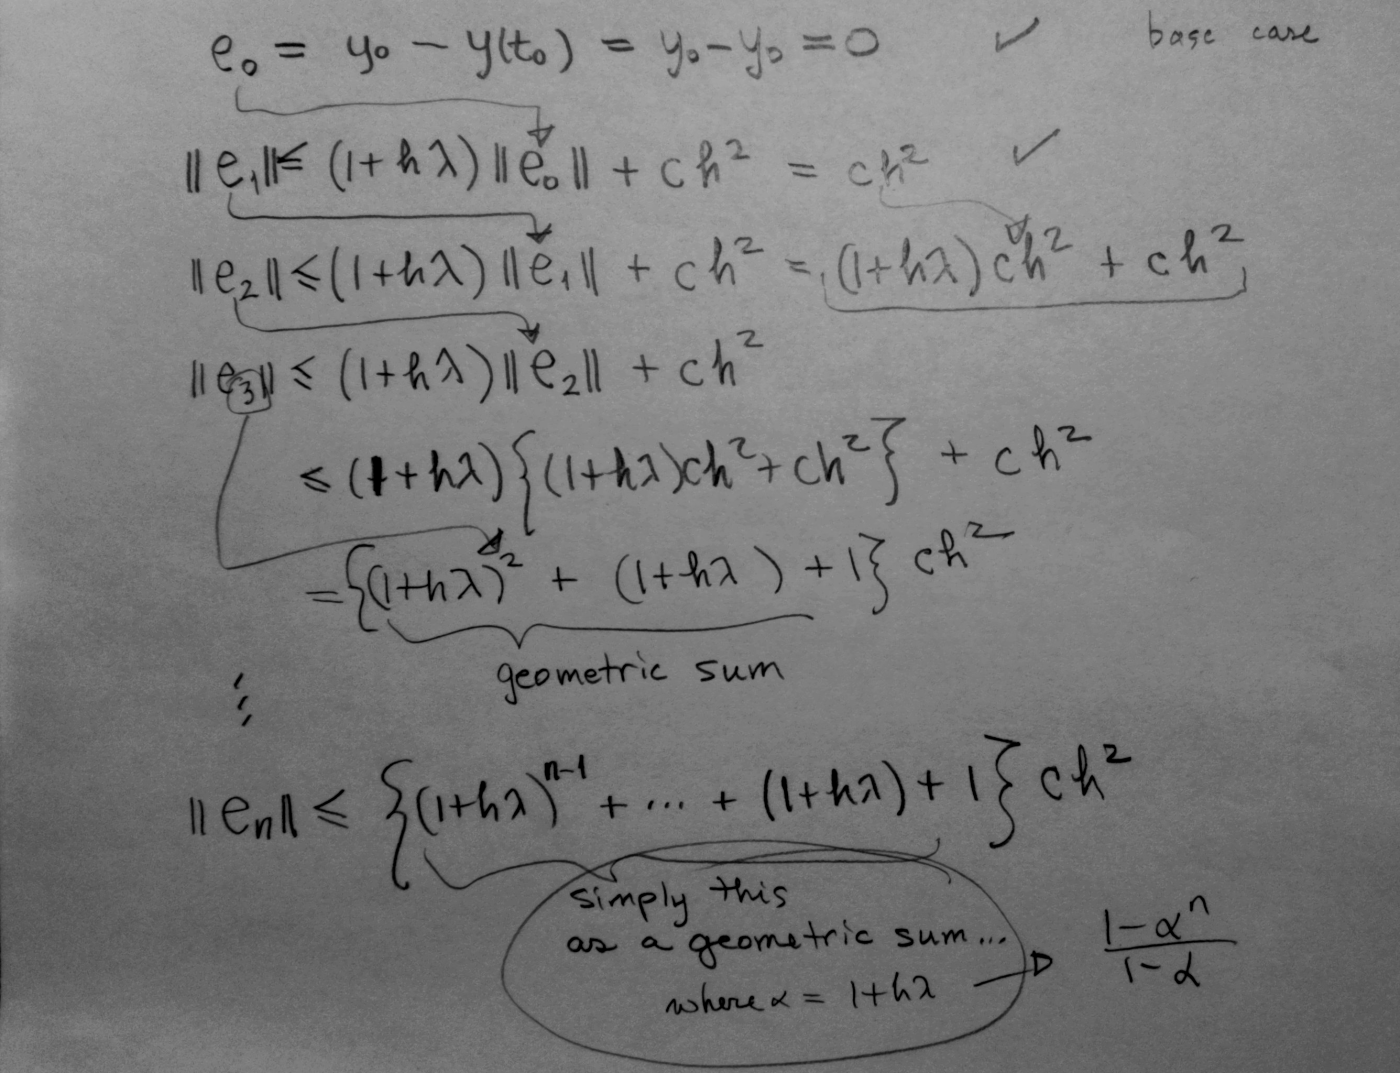 e₀ = y₀ − y(t₀) = y₀ − y₀ = 0 ✓ base case
‖e₁‖ ≤ (1+hλ)‖e₀‖ + ch² = ch² ✓
‖e₂‖ ≤ (1+hλ)‖e₁‖ + ch² = (1+hλ)ch² + ch²
‖e₃‖ ≤ (1+hλ)‖e₂‖ + ch²
≤ (1+hλ){(1+hλ)ch² + ch²} + ch²
= {(1+hλ)² + (1+hλ) + 1} ch²
geometric sum
⋮
‖eₙ‖ ≤ {(1+hλ)ⁿ⁻¹ + ... + (1+hλ) + 1} ch²
simply this
as a geometric sum...
where α = 1+hλ → (1−αⁿ)/(1−α)